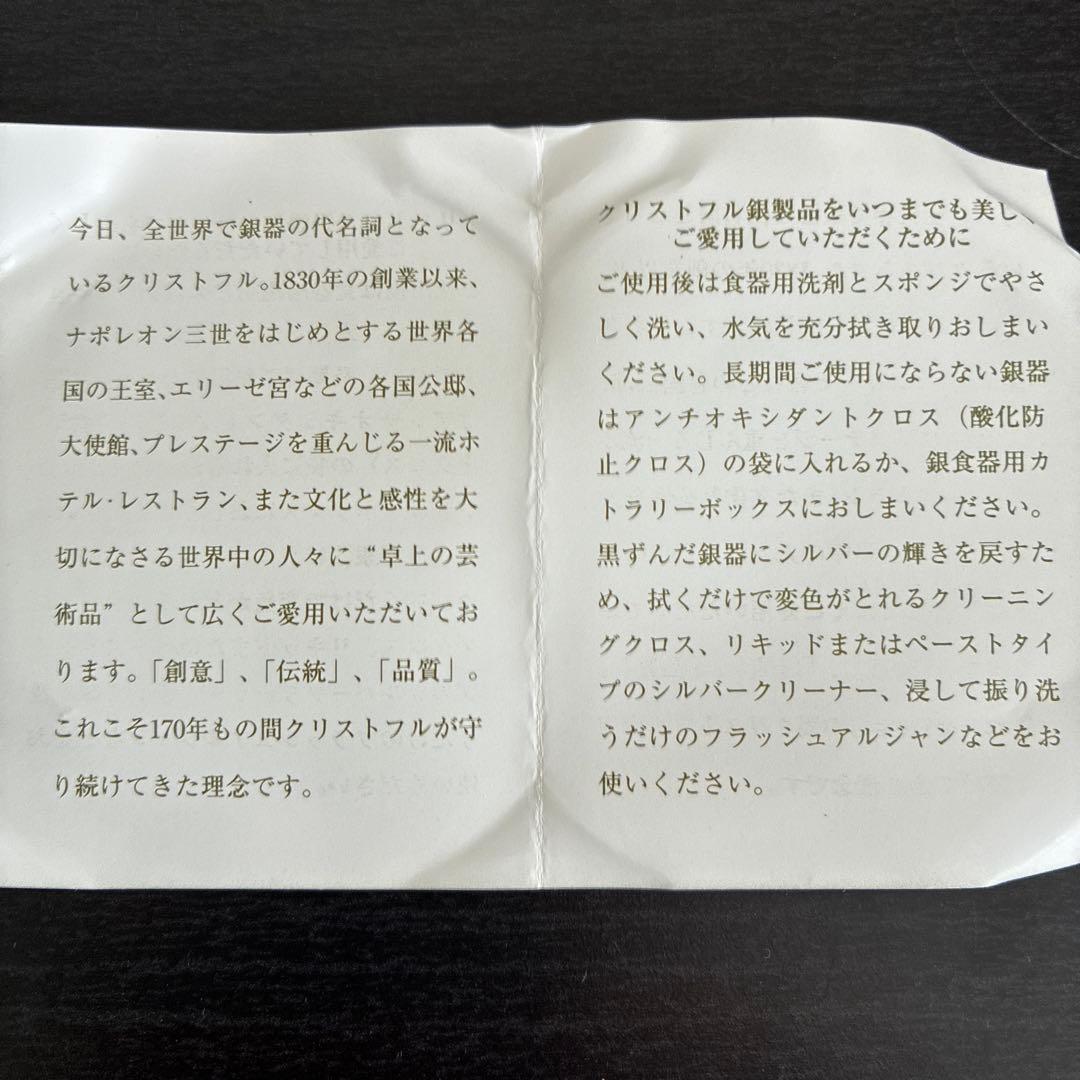 今日、全世界で銀器の代名詞となって
いるクリストフル。1830年の創業以来、
ナポレオン三世をはじめとする世界各
国の王室、エリーゼ宮などの各国公邸、
大使館、プレステージを重んじる一流ホ
テル・レストラン、また文化と感性を大
切になさる世界中の人々に“卓上の芸
術品”として広くご愛用いただいてお
ります。「創意」、「伝統」、「品質」。
これこそ170年もの間クリストフルが守
り続けてきた理念です。
クリストフル銀製品をいつまでも美し
ご愛用していただくために
ご使用後は食器用洗剤とスポンジでやさ
しく洗い、水気を充分拭き取りおしまい
ください。長期間ご使用にならない銀器
はアンチオキシダントクロス（酸化防
止クロス）の袋に入れるか、銀食器用カ
トラリーボックスにおしまいください。
黒ずんだ銀器にシルバーの輝きを戻すた
め、拭くだけで変色がとれるクリーニン
グクロス、リキッドまたはペーストタイ
プのシルバークリーナー、浸して振り洗
うだけのフラッシュアルジャンなどをお
使いください。